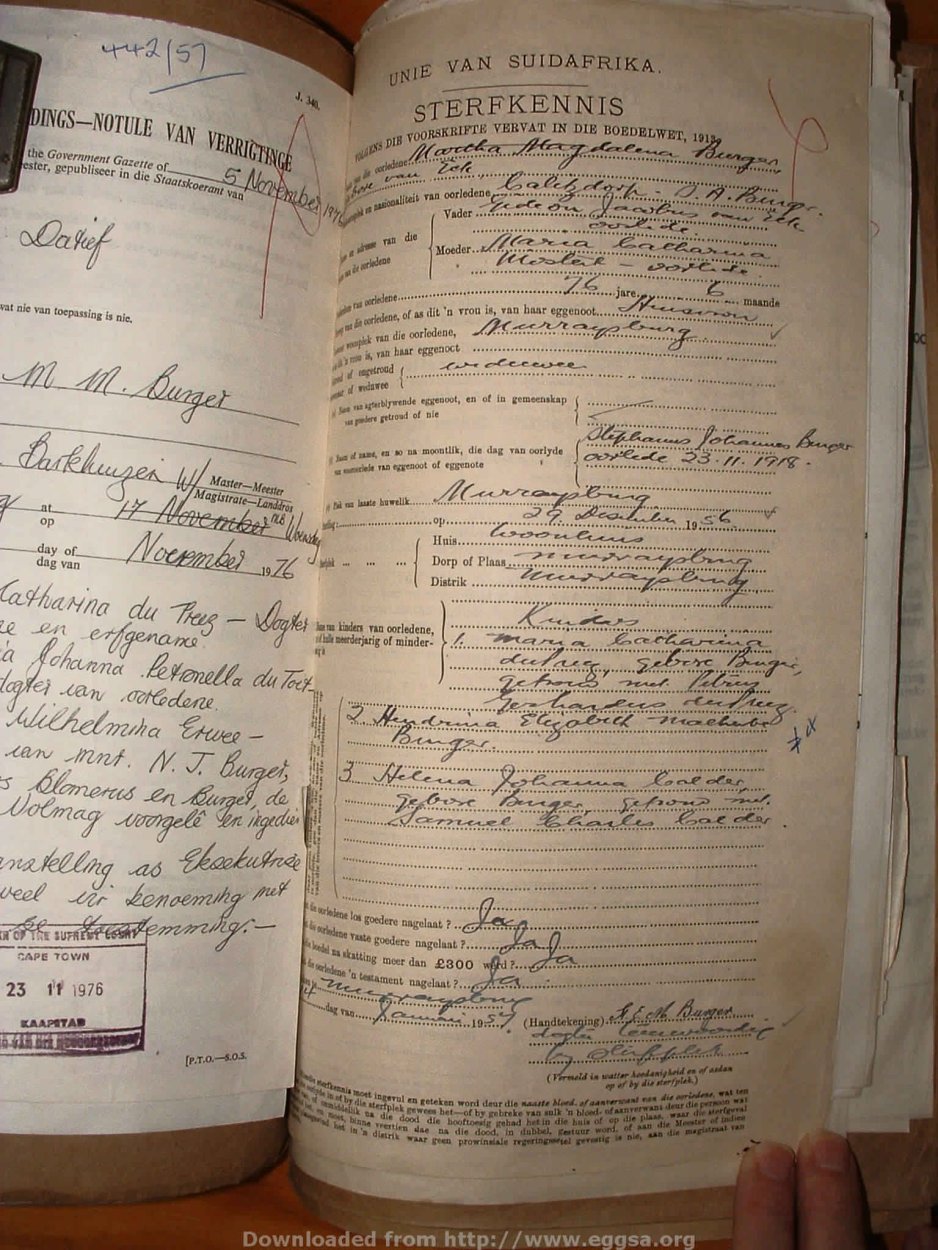 442/57
J. 340.
DINGS—NOTULE VAN VERRIGTINGE
the Government Gazette of
ester, gepubliseer in die Staatskoerant van
5 November 1976
Datief
wat nie van toepassing is nie.
M. M. Burger
Barkhuizen W/
Master—Meester
Magistrate—Landdros
at
op
17 November
Woensdag
day of
dag van
November 1976
Catharina du Preez — Dogter
en erfgename
Johanna Petronella du Toit
dogter van oorledene.
Wilhelmina Erwee —
van mnr. N. J. Burger,
Blomerus en Burger, de
Volmag voorgelê en ingedien
anstelling as Eksekutrise
weel vir benoeming met
temming.—
OF THE SUPREME COURT
CAPE TOWN
23 11 1976
KAAPSTAD
[P.T.O.—S.O.S.
UNIE VAN SUIDAFRIKA.
STERFKENNIS
VOLGENS DIE VOORSKRIFTE VERVAT IN DIE BOEDELWET, 1913.
van die oorledene Martha Magdalena Burger
Gebore van Eck
en nasionaliteit van oorledene Calitzdorp - S.A. Burger.
Vader Gideon Jacobus van Eck
oorlede.
van die
oorledene
Moeder Maria Catharina
Mostert - oorlede.
van oorledene 76 jare 6 maande
van die oorledene, of as dit 'n vrou is, van haar eggenoot Huisvrou
woonplek van die oorledene, Murraysburg
'n vrou is, van haar eggenoot
of ongetroud
of weduwee
weduwee
Naam van agterblywende eggenoot, en of in gemeenskap
van goedere getroud of nie
Naam of name, en so na moontlik, die dag van oorlyde
van eggenoot of eggenote
Stephanus Johannes Burger
oorlede 23.11.1918.
Plek van laaste huwelik Murraysburg
op 29 Desember 1956
Huis Woonhuis
Dorp of Plaas Murraysburg
Distrik Murraysburg
Name van kinders van oorledene,
of hulle meerderjarig of minder-
Kinders
1. Maria Catharina
du Preez, gebore Burger,
getroud met Petrus
Gerhardus du Preez.
2 Hendrina Elizabeth Malherbe
Burger.
3 Helena Johanna Calder,
gebore Burger, getroud met
Samuel Charles Calder.
die oorledene los goedere nagelaat? Ja
die oorledene vaste goedere nagelaat? Ja
die boedel na skatting meer dan £300 werd? Ja
die oorledene 'n testament nagelaat? Ja
Murraysburg
dag van Januari 1957.
(Handtekening) H. E. M. Burger
dogter teenwoordig
by sterfplek
(Vermeld in watter hoedanigheid en of asdan
op of by die sterfplek.)
sterfkennis moet ingevul en geteken word deur die naaste bloed- of aanverwant van die oorledene, wat ten
in of by die sterfplek gewees het—of by gebreke van sulk 'n bloed- of aanverwant deur die persoon wat
onmiddellik na die dood die hooftoesig gehad het in die huis of op die plaas, waar die sterfgeval
en moet, binne veertien dae na die dood, in dubbel, gestuur word, of aan die Meester of indien
het in 'n distrik waar geen provinsiale regeringsetel gevestig is nie, aan die magistraat van
Downloaded from http://www.eggsa.org